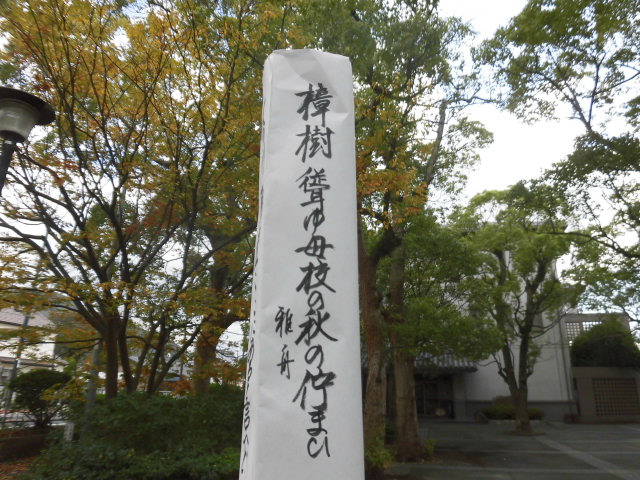 樟樹聳ゆ母校の秋の佇まひ
雅舟